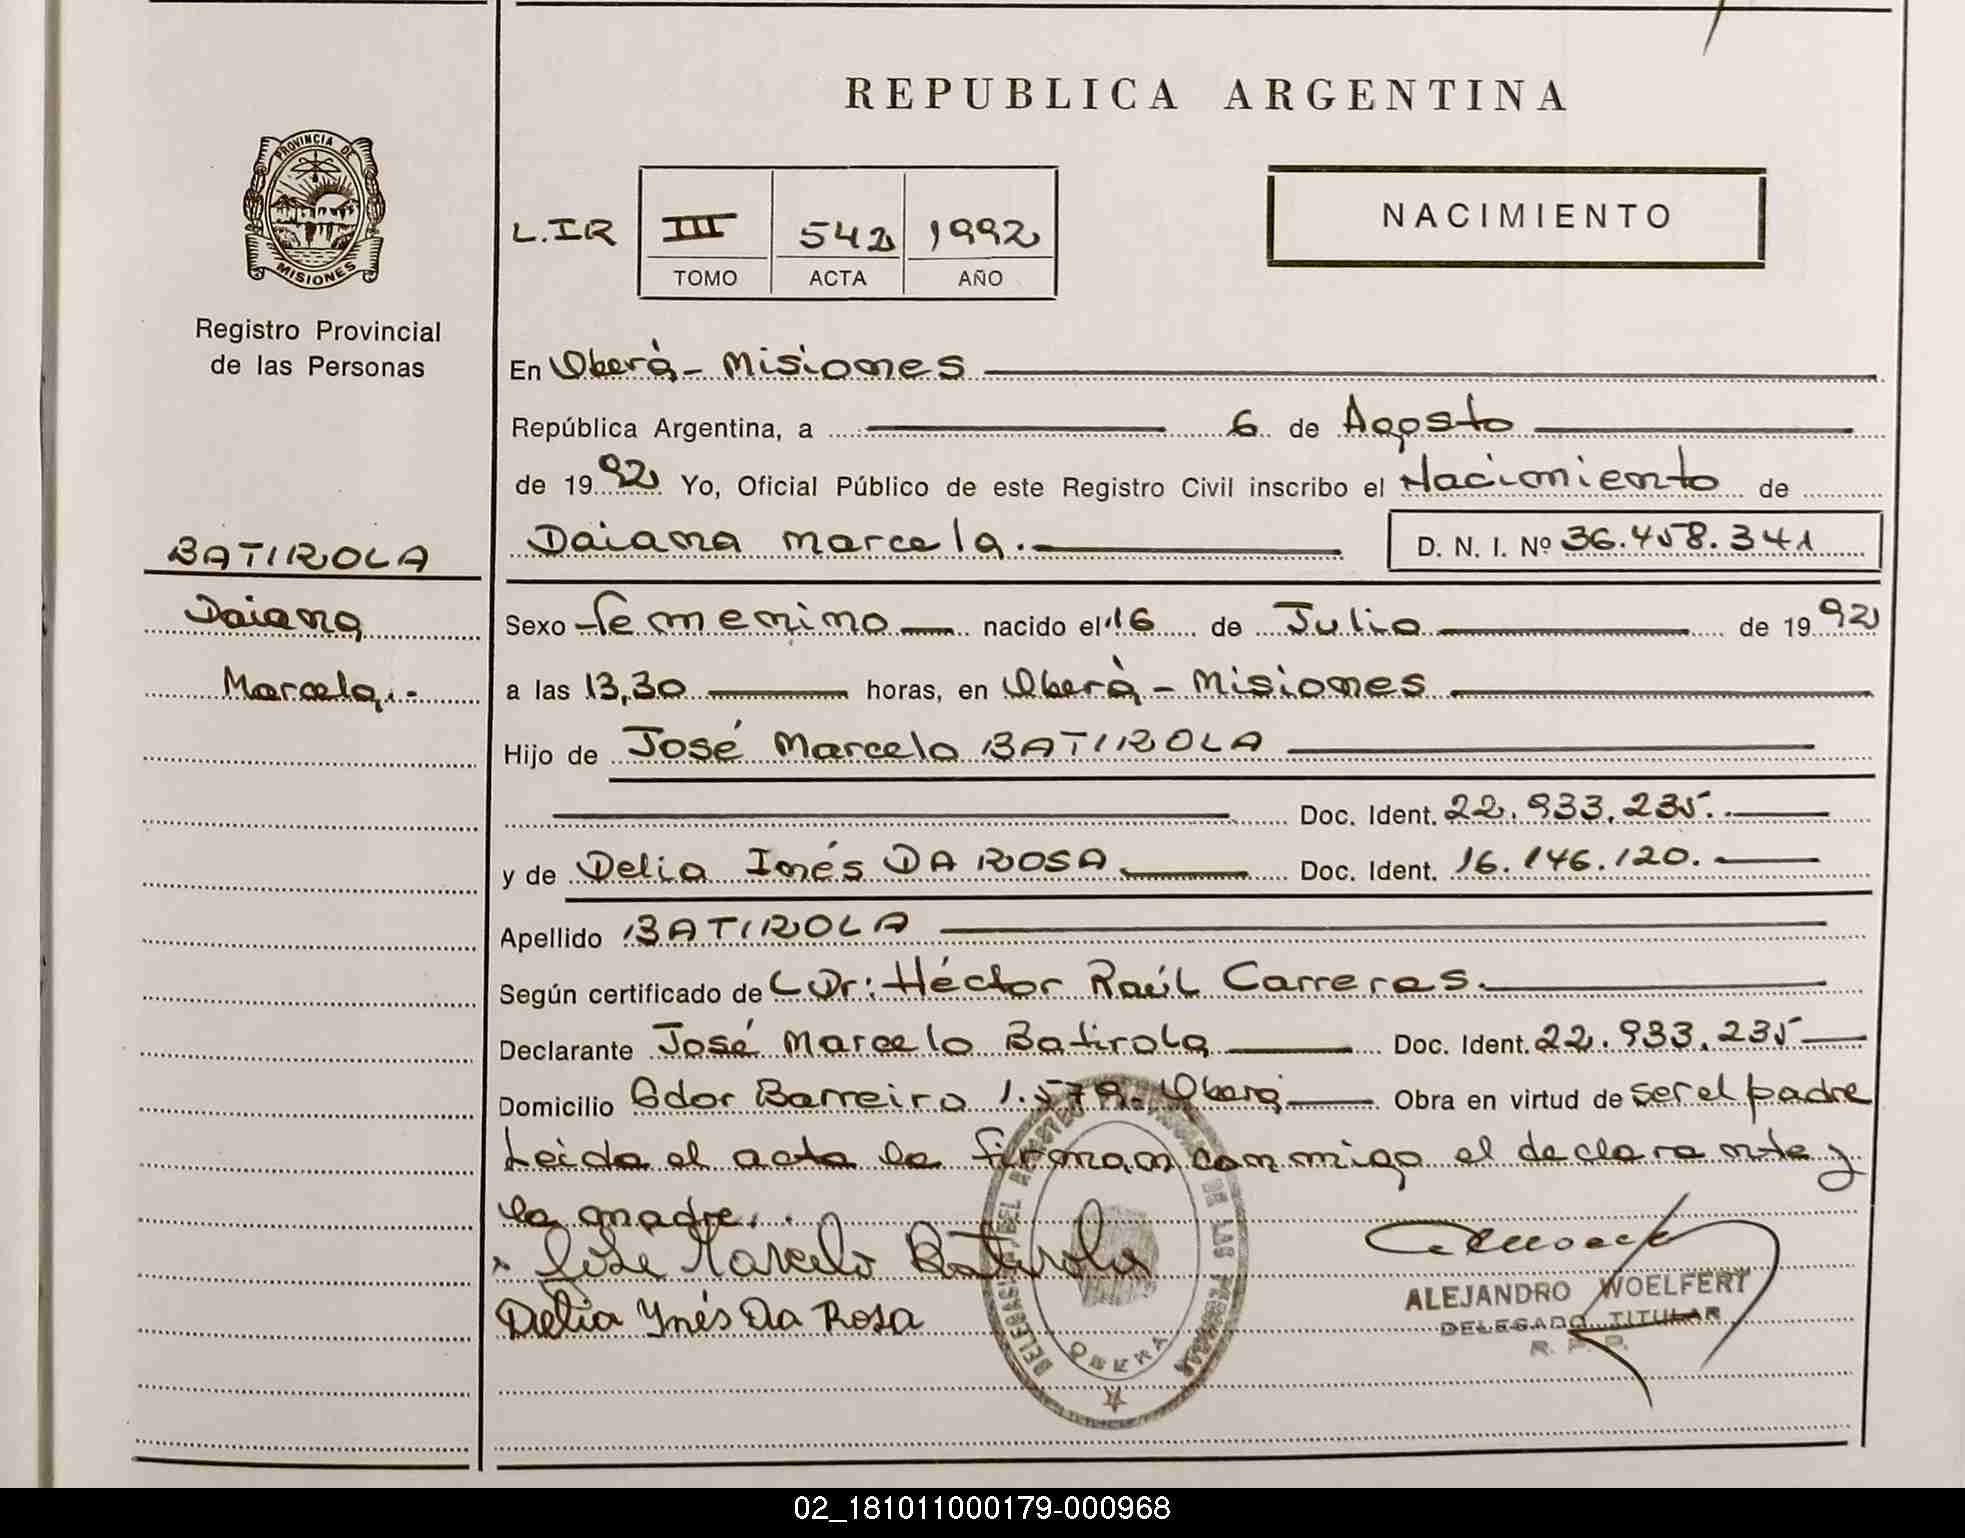 REPUBLICA ARGENTINA
PROVINCIA DE
MISIONES
Registro Provincial
de las Personas
L.IR III 542 1992
TOMO ACTA AÑO
NACIMIENTO
En Oberá - Misiones
República Argentina, a 6 de Agosto
de 1992 Yo, Oficial Público de este Registro Civil inscribo el Nacimiento de
Daiana Marcela. D. N. I. Nº 36.458.341
BATIROLA
Daiana
Marcela.-
Sexo femenino nacido el 16 de Julio de 1992
a las 13,30 horas, en Oberá - Misiones
Hijo de José Marcelo BATIROLA
Doc. Ident. 22.933.235.
y de Delia Inés DA ROSA Doc. Ident. 16.146.120.
Apellido BATIROLA
Según certificado de Dr: Héctor Raúl Carreras.
Declarante José Marcelo Batirola Doc. Ident. 22.933.235
Domicilio Gdor Barreiro 1.579. Oberá Obra en virtud de ser el padre
Leida el acta la firman conmigo el declarante y
la madre..
José Marcelo Batirola
Delia Ynés Da Rosa
DE LAS PERSONAS
OBERA
ALEJANDRO WOELFERT
DELEGADO TITULAR
R. P. P.
02_181011000179-000968